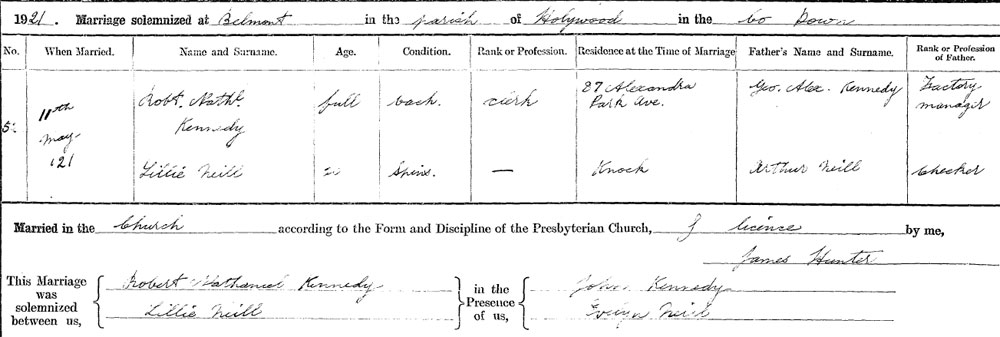 1921. Marriage solemnized at Belmont in the parish of Holywood in the Co Down
No. When Married. Name and Surname. Age. Condition. Rank or Profession. Residence at the Time of Marriage Father's Name and Surname. Rank or Profession of Father.
5. 11th May '21
Robt. Nathl. Kennedy full bach. clerk 87 Alexandra Park Ave. Geo. Alex. Kennedy Factory manager
Lillie Neill Spins. — Knock Arthur Neill Checker
Married in the Church according to the Form and Discipline of the Presbyterian Church, licence by me,
James Hunter
This Marriage was solemnized between us,
Robert Nathaniel Kennedy
Lillie Neill
in the Presence of us,
John Kennedy
Evelyn Neill